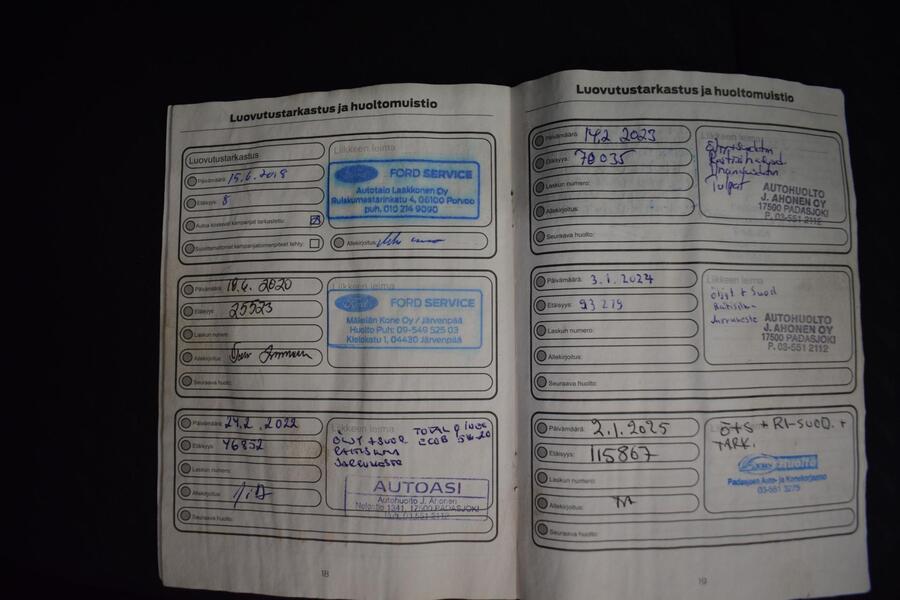 Luovutustarkastus ja huoltomuistio
Luovutustarkastus
Päivämäärä: 15.6.2018
Etäisyys: 8
Autoa koskevat kampanjat tarkastettu:
Suorittamattomat kampanjatoimenpiteet tehty:
Liikkeen leima
Ford FORD SERVICE
Autotalo Laakkonen Oy
Ruiskumestarinkatu 4, 06100 Porvoo
puh. 010 214 9090
Allekirjoitus:
Päivämäärä: 19.6.2020
Etäisyys: 25523
Laskun numero:
Allekirjoitus:
Seuraava huolto:
Liikkeen leima
Ford FORD SERVICE
Mäkelän Kone Oy / Järvenpää
Huolto Puh: 09-549 525 03
Kielokatu 1, 04430 Järvenpää
Päivämäärä: 24.2.2022
Etäisyys: 46852
Laskun numero:
Allekirjoitus:
Seuraava huolto:
Liikkeen leima
ÖLJY + SUOD
RAITISILMA
JARRUNESTE
TOTAL
5W-20
AUTOASI
Autohuolto J. Ahonen
1341, 17500 PADASJOKI
Puh. 03-551 2112
18
Luovutustarkastus ja huoltomuistio
Päivämäärä: 14.2.2023
Etäisyys: 70035
Laskun numero:
Allekirjoitus:
Seuraava huolto:
Liikkeen leima
Tulpat
AUTOHUOLTO
J. AHONEN OY
17500 PADASJOKI
P. 03-551 2112
Päivämäärä: 3.1.2024
Etäisyys: 93279
Laskun numero:
Allekirjoitus:
Seuraava huolto:
Liikkeen leima
Öljyt + Suod
Raitisilma
Jarruneste
AUTOHUOLTO
J. AHONEN OY
17500 PADASJOKI
P. 03-551 2112
Päivämäärä: 2.1.2025
Etäisyys: 115867
Laskun numero:
Allekirjoitus:
Seuraava huolto:
Liikkeen leima
Ö+S + RI-SUOD. +
TARK.
Huolto
Padasjoen Auto- ja Konekorjaamo
03-551 3275
19